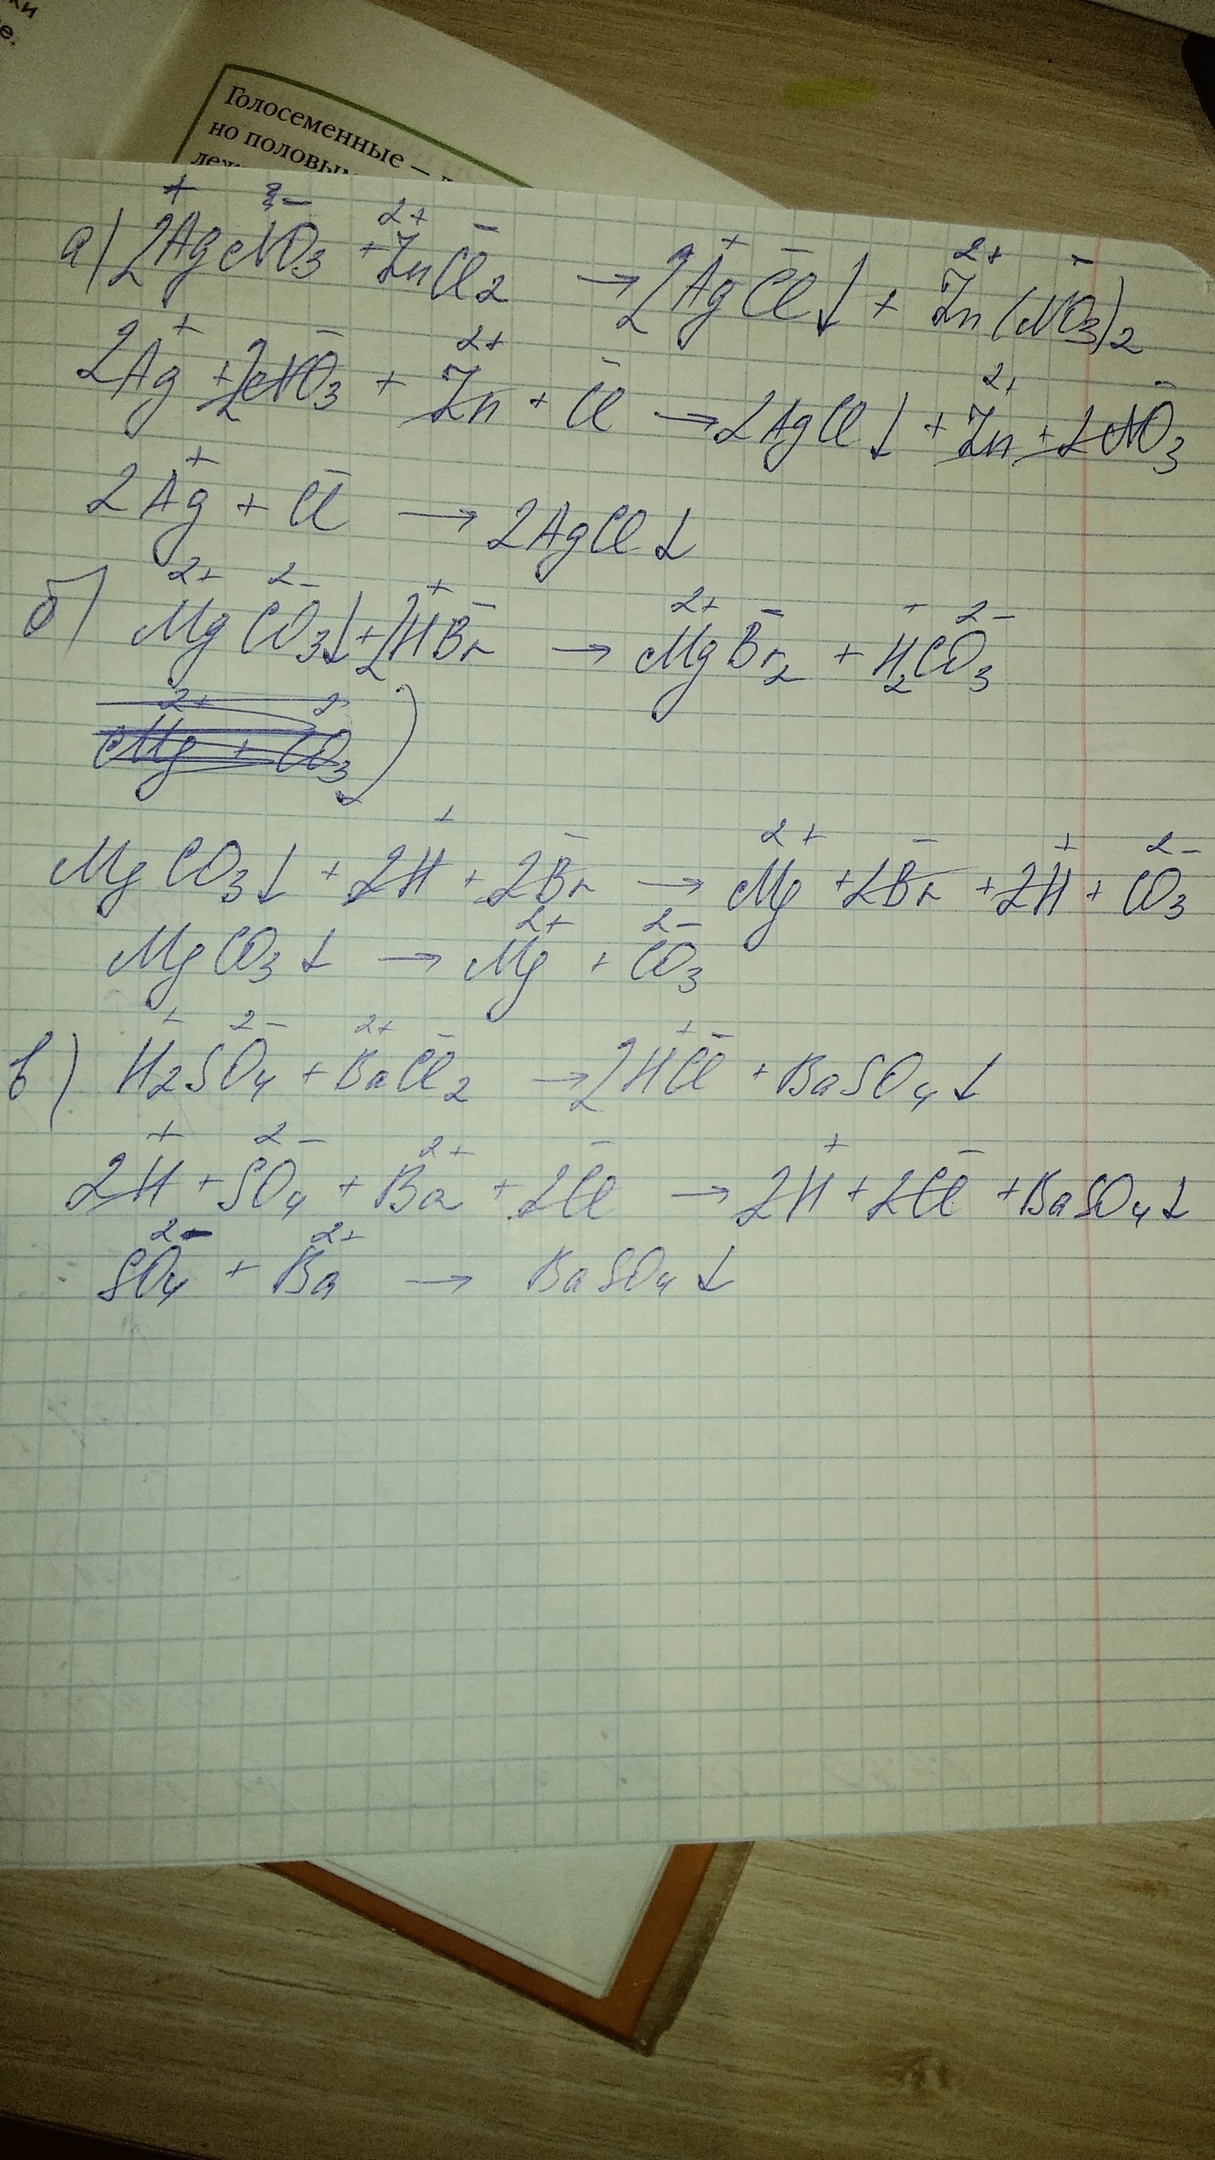 ки
е.
Голосеменные –
но половым
а) 2Ag⁺NO₃⁻ + Zn²⁺Cl₂⁻ → 2Ag⁺Cl⁻↓ + Zn²⁺(NO₃⁻)₂
2Ag⁺ + 2NO₃⁻ + Zn²⁺ + Cl⁻ → 2AgCl↓ + Zn²⁺ + 2NO₃⁻
2Ag⁺ + Cl⁻ → 2AgCl↓
б) Mg²⁺CO₃²⁻↓ + 2H⁺Br⁻ → Mg²⁺Br₂⁻ + H₂⁺CO₃²⁻
Mg²⁺ + CO₃²
MgCO₃↓ + 2H⁺ + 2Br⁻ → Mg²⁺ + 2Br⁻ + 2H⁺ + CO₃²⁻
MgCO₃↓ → Mg²⁺ + CO₃²⁻
в) H₂⁺SO₄²⁻ + Ba²⁺Cl₂⁻ → 2H⁺Cl⁻ + BaSO₄↓
2H⁺ + SO₄²⁻ + Ba²⁺ + 2Cl⁻ → 2H⁺ + 2Cl⁻ + BaSO₄↓
SO₄²⁻ + Ba²⁺ → BaSO₄↓